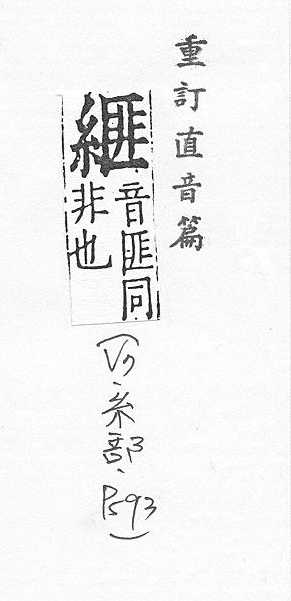 重訂直音篇
音匪同
非也
(V7、糸部、P593)